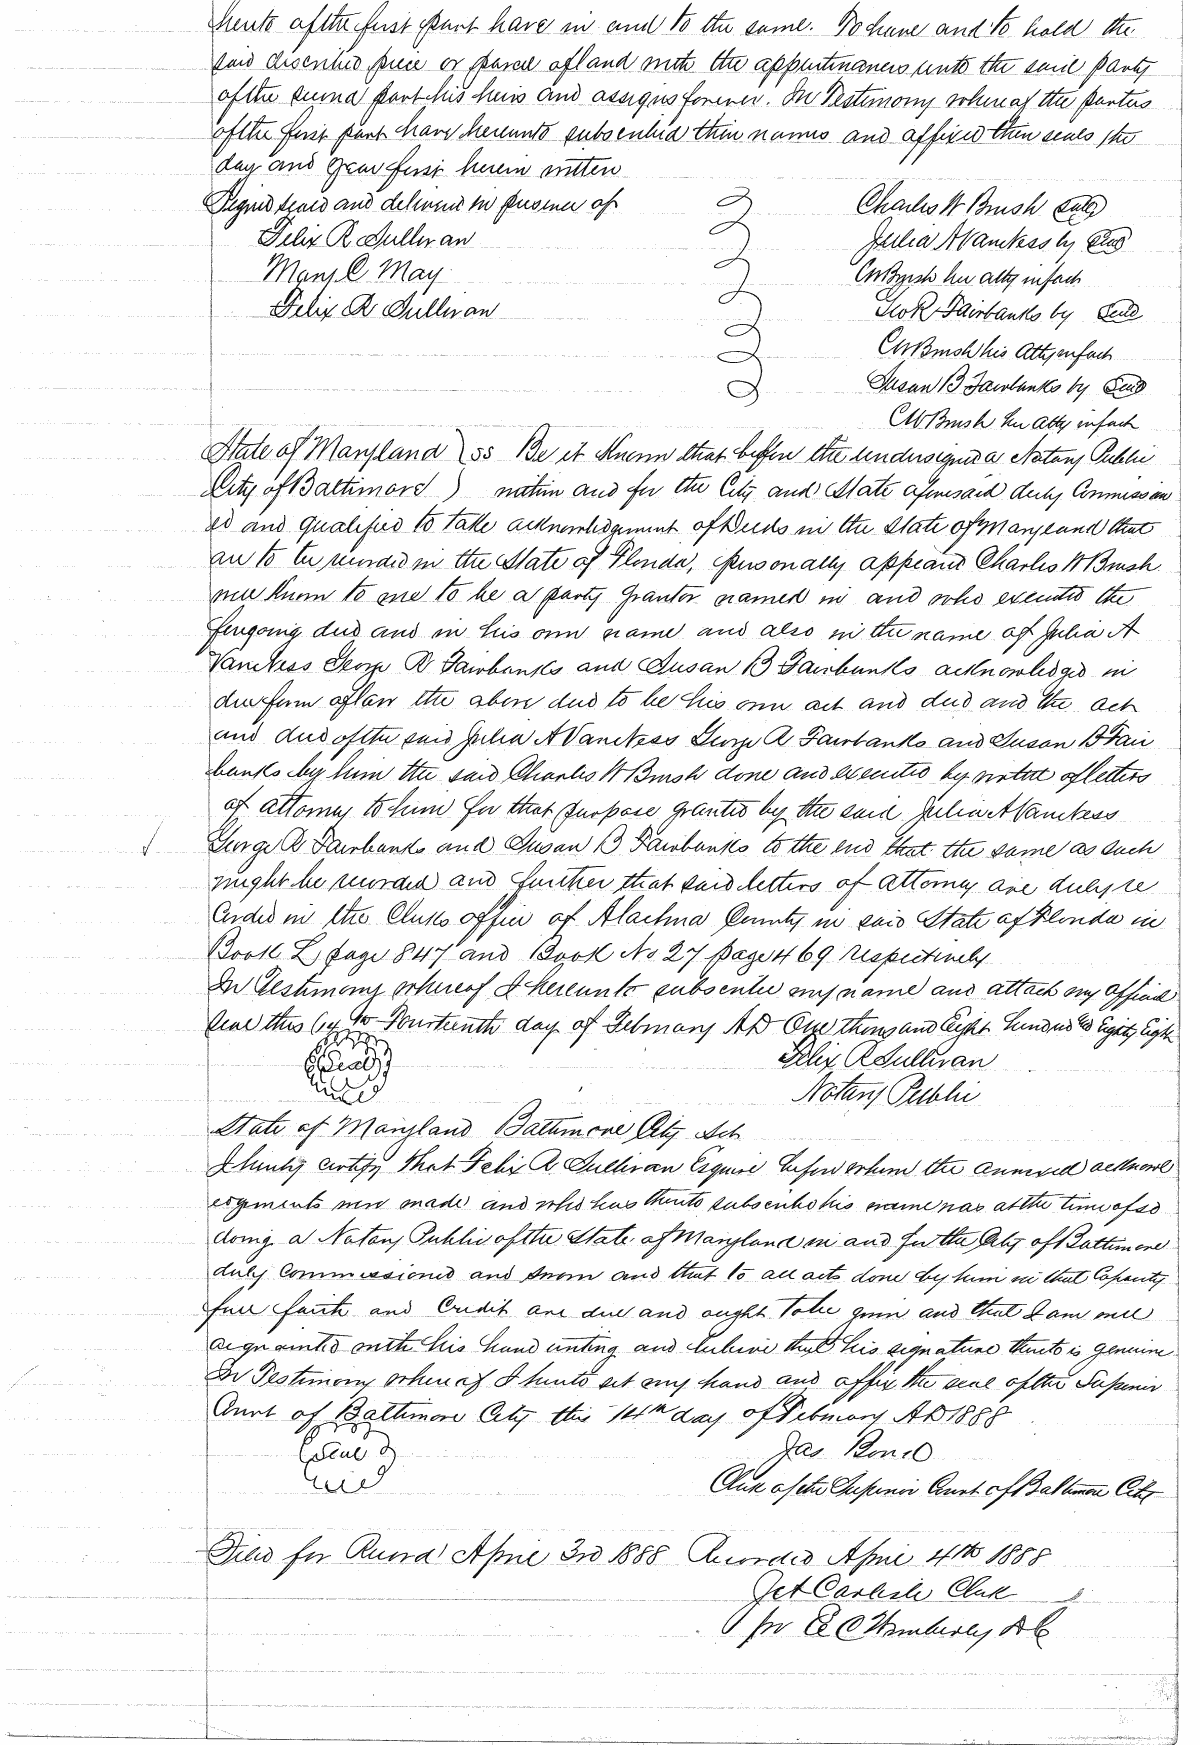 ments of the first part have in and to the same. To have and to hold the
said described piece or parcel of land with the appurtinances unto the said party
of the second part his heirs and assigns forever. In Testimony whereof the parties
of the first part have hereunto subscribed their names and affixed their seals the
day and year first herein written
Signed sealed and delivered in presence of
Felix R Sullivan
Mary C May
Felix R Sullivan
Charles W Brush Seal
Julia A VanNess by Seal
CW Brush her atty in fact
Geo R Fairbanks by Seal
CW Brush his Atty in fact
Susan B Fairbanks by Seal
CW Brush her atty in fact
State of Maryland ) ss Be it Known that before the undersigned a Notary Public
City of Baltimore ) within and for the City and State aforesaid duly Commission
ed and qualified to take acknowledgement of Deeds in the State of Maryland that
are to be recorded in the State of Florida, personally appeared Charles W Brush
well known to me to be a party grantor named in and who executed the
foregoing deed and in his own name and also in the name of Julia A
VanNess George R Fairbanks and Susan B Fairbanks acknowledged in
due form of law the above deed to be his own act and deed and the act
and deed of the said Julia A VanNess George R Fairbanks and Susan B Fair
banks by him the said Charles W Brush done and executed by virtue of letters
of attorney to him for that purpose granted by the said Julia A VanNess
George R Fairbanks and Susan B Fairbanks to the end that the same as such
might be recorded and further that said letters of attorney are duly re
corded in the Clerks office of Alachua County in said State of Florida in
Book L page 847 and Book No 27 page 469 respectively
In Testimony whereof I hereunto subscribe my name and attach my official
seal this Fourteenth day of February AD One thousand Eight hundred Eighty Eight
Seal
Felix R Sullivan
Notary Public
State of Maryland Baltimore City Sct
I hereby certify that Felix R Sullivan Esquire before whom the annexed acknowl
edgments were made and who has thereto subscribed his name was at the time of so
doing a Notary Public of the State of Maryland in and for the City of Baltimore
duly Commissioned and sworn and that to all acts done by him in that Capacity
full faith and Credit are due and ought to be given and that I am well
acquainted with his hand writing and believe that his signature thereto is genuine
In Testimony whereof I hereto set my hand and affix the seal of the Superior
Court of Baltimore City this 14th day of February AD 1888
Seal
Jas Bond
Clerk of the Superior Court of Baltimore City
Filed for Record April 3rd 1888 Recorded April 4th 1888
Carlisle Clerk
pr E C Wimberley DC